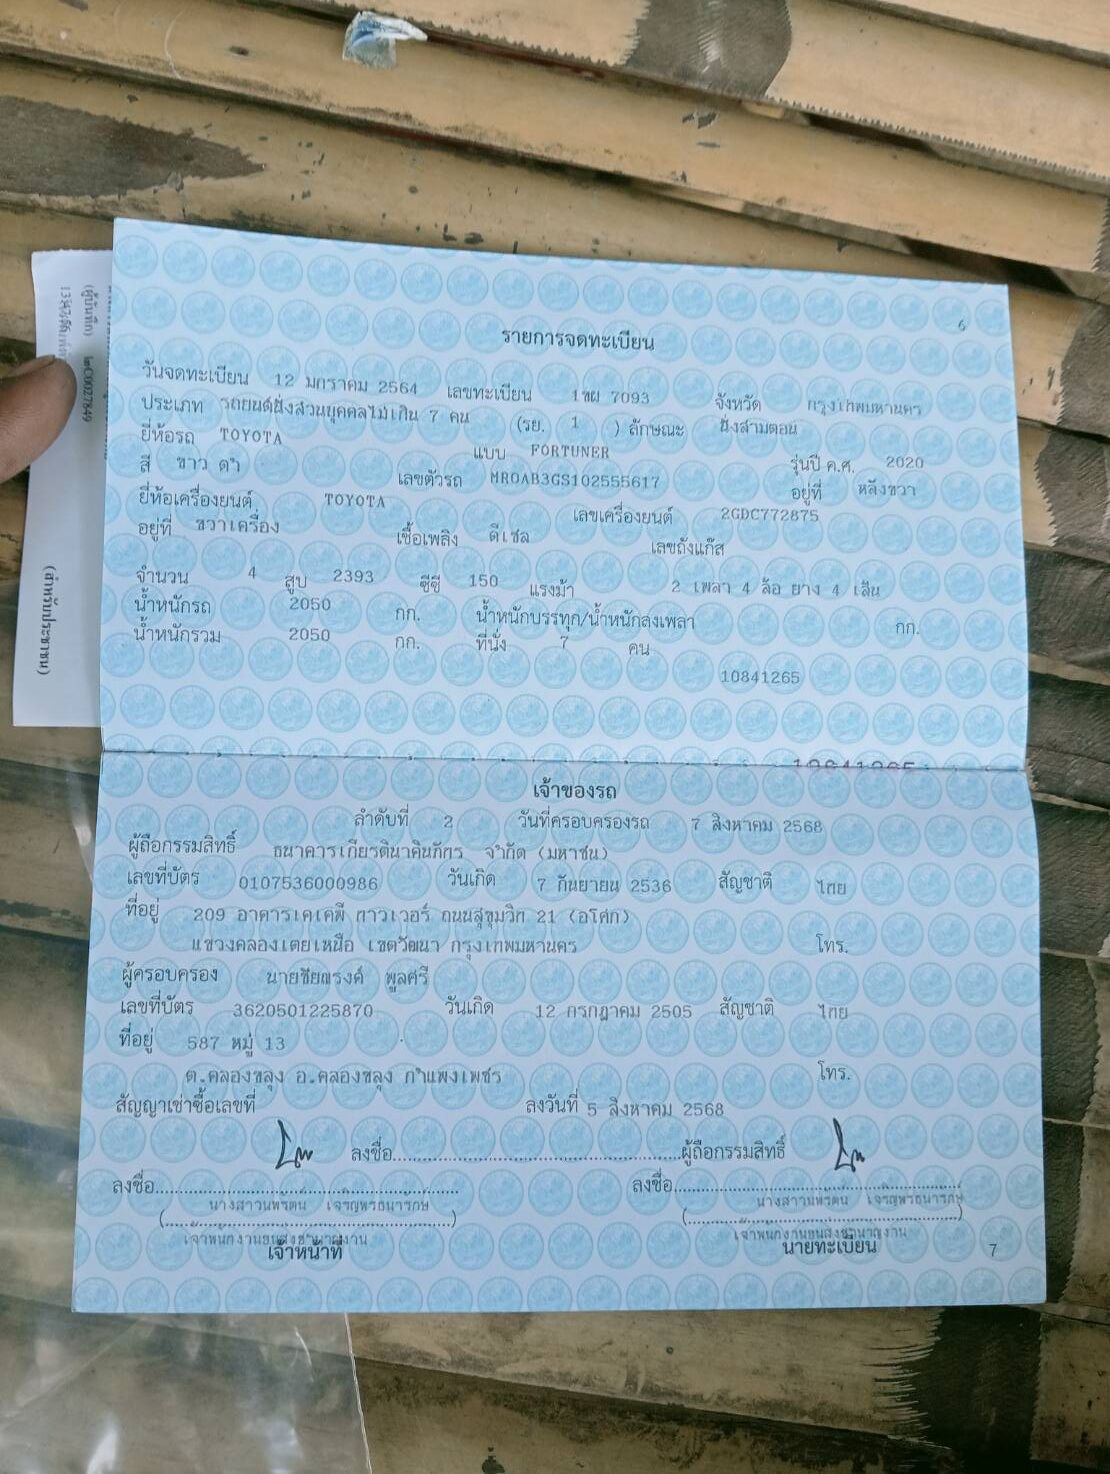 6
รายการจดทะเบียน
วันจดทะเบียน 12 มกราคม 2564 เลขทะเบียน 1ขผ 7093 จังหวัด กรุงเทพมหานคร
ประเภท รถยนต์นั่งส่วนบุคคลไม่เกิน 7 คน (รย. 1 ) ลักษณะ นั่งสามตอน
ยี่ห้อรถ TOYOTA แบบ FORTUNER รุ่นปี ค.ศ. 2020
สี ขาว ดำ เลขตัวรถ MR0AB3GS102555617 อยู่ที่ หลังขวา
ยี่ห้อเครื่องยนต์ TOYOTA เลขเครื่องยนต์ 2GDC772875
อยู่ที่ ขวาเครื่อง เชื้อเพลิง ดีเซล เลขถังแก๊ส
จำนวน 4 สูบ 2393 ซีซี 150 แรงม้า 2 เพลา 4 ล้อ ยาง 4 เส้น
น้ำหนักรถ 2050 กก. น้ำหนักบรรทุก/น้ำหนักลงเพลา กก.
น้ำหนักรวม 2050 กก. ที่นั่ง 7 คน
10841265
เจ้าของรถ
ลำดับที่ 2 วันที่ครอบครองรถ 7 สิงหาคม 2568
ผู้ถือกรรมสิทธิ์ ธนาคารเกียรตินาคินภัทร จำกัด (มหาชน)
เลขที่บัตร 0107536000986 วันเกิด 7 กันยายน 2536 สัญชาติ ไทย
ที่อยู่ 209 อาคารเคเคพี ทาวเวอร์ ถนนสุขุมวิท 21 (อโศก)
แขวงคลองเตยเหนือ เขตวัฒนา กรุงเทพมหานคร โทร.
ผู้ครอบครอง นายชัยณรงค์ พูลศรี
เลขที่บัตร 3620501225870 วันเกิด 12 กรกฎาคม 2505 สัญชาติ ไทย
ที่อยู่ 587 หมู่ 13
ต.คลองขลุง อ.คลองขลุง กำแพงเพชร โทร.
สัญญาเช่าซื้อเลขที่ ลงวันที่ 5 สิงหาคม 2568
ลงชื่อ ผู้ถือกรรมสิทธิ์
ลงชื่อ ลงชื่อ
นางสาวนพรัตน์ เจริญพรธนารักษ์ นางสาวนพรัตน์ เจริญพรธนารักษ์
เจ้าพนักงานขนส่งชำนาญงาน เจ้าพนักงานขนส่งชำนาญงาน
เจ้าหน้าที่ นายทะเบียน
7
(สำหรับประชาชน)